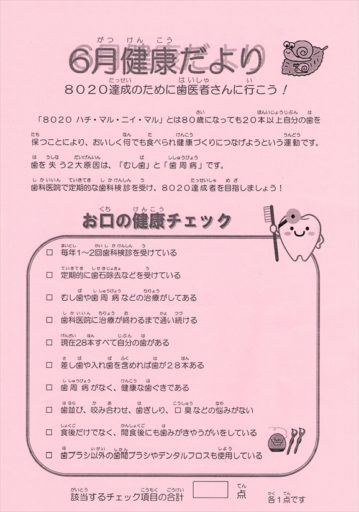 6月健康だより
8020達成のために歯医者さんに行こう！
「8020 ハチ・マル・ニイ・マル」とは80歳になっても20本以上自分の歯を
保つことにより、おいしく何でも食べられ健康づくりにつなげようという運動です。
歯を失う2大原因は、「むし歯」と「歯周病」です。
歯科医院で定期的な歯科検診を受け、8020達成者を目指しましょう！
お口の健康チェック
□ 毎年1～2回歯科検診を受けている
□ 定期的に歯石除去などを受けている
□ むし歯や歯周病などの治療がしてある
□ 歯科医院に治療が終わるまで通い続ける
□ 現在28本すべて自分の歯がある
□ 差し歯や入れ歯を含めれば歯が28本ある
□ 歯周病がなく、健康な歯ぐきである
□ 歯並び、咬み合わせ、歯ぎしり、口臭などの悩みがない
□ 食後だけでなく、間食後にも歯みがきやうがいをしている
□ 歯ブラシ以外の歯間ブラシやデンタルフロスも使用している
該当するチェック項目の合計 点 各1点です